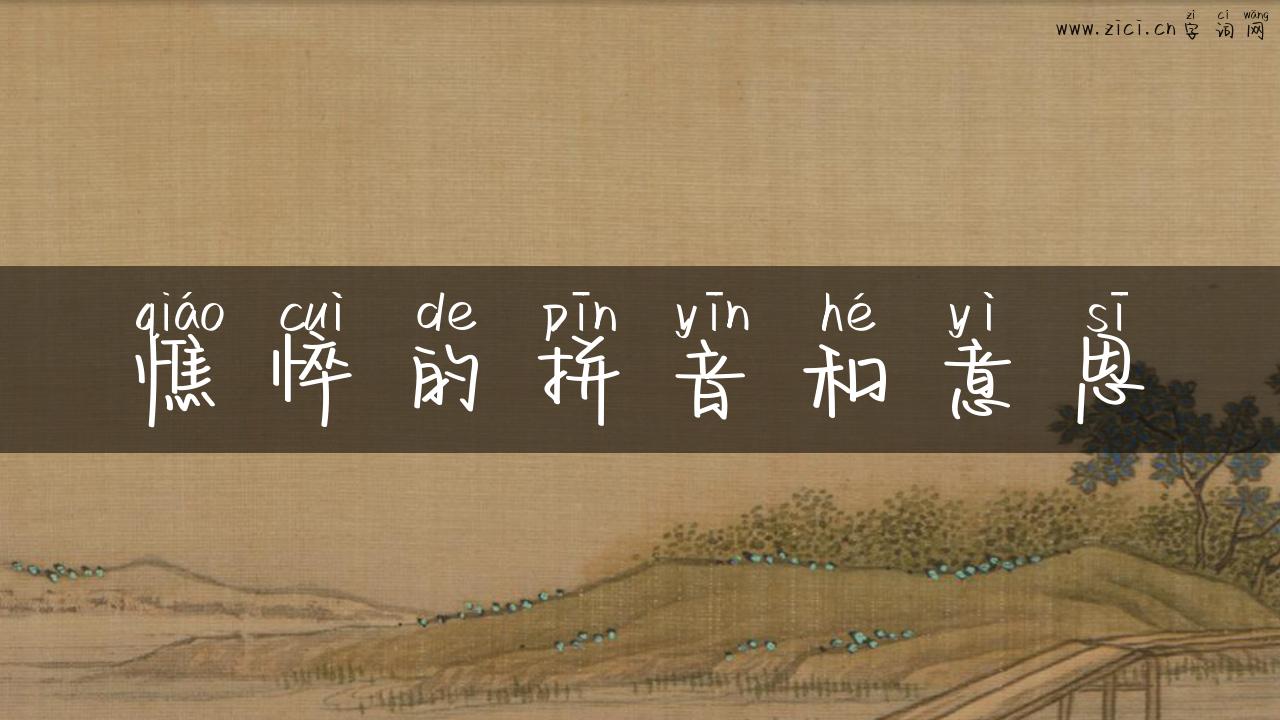 zì cí wǎng
www.zici.cn 字词网
qiáo cuì de pīn yīn hé yì sī
憔悴的拼音和意思